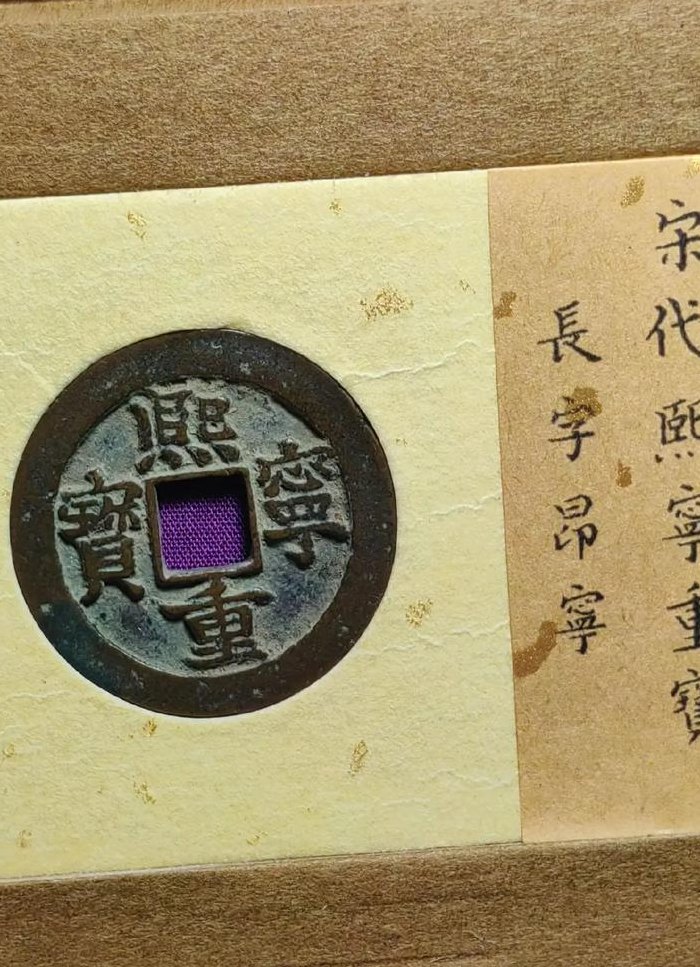 熙寧重寳
宋代熙寧重寳
長字昂寧